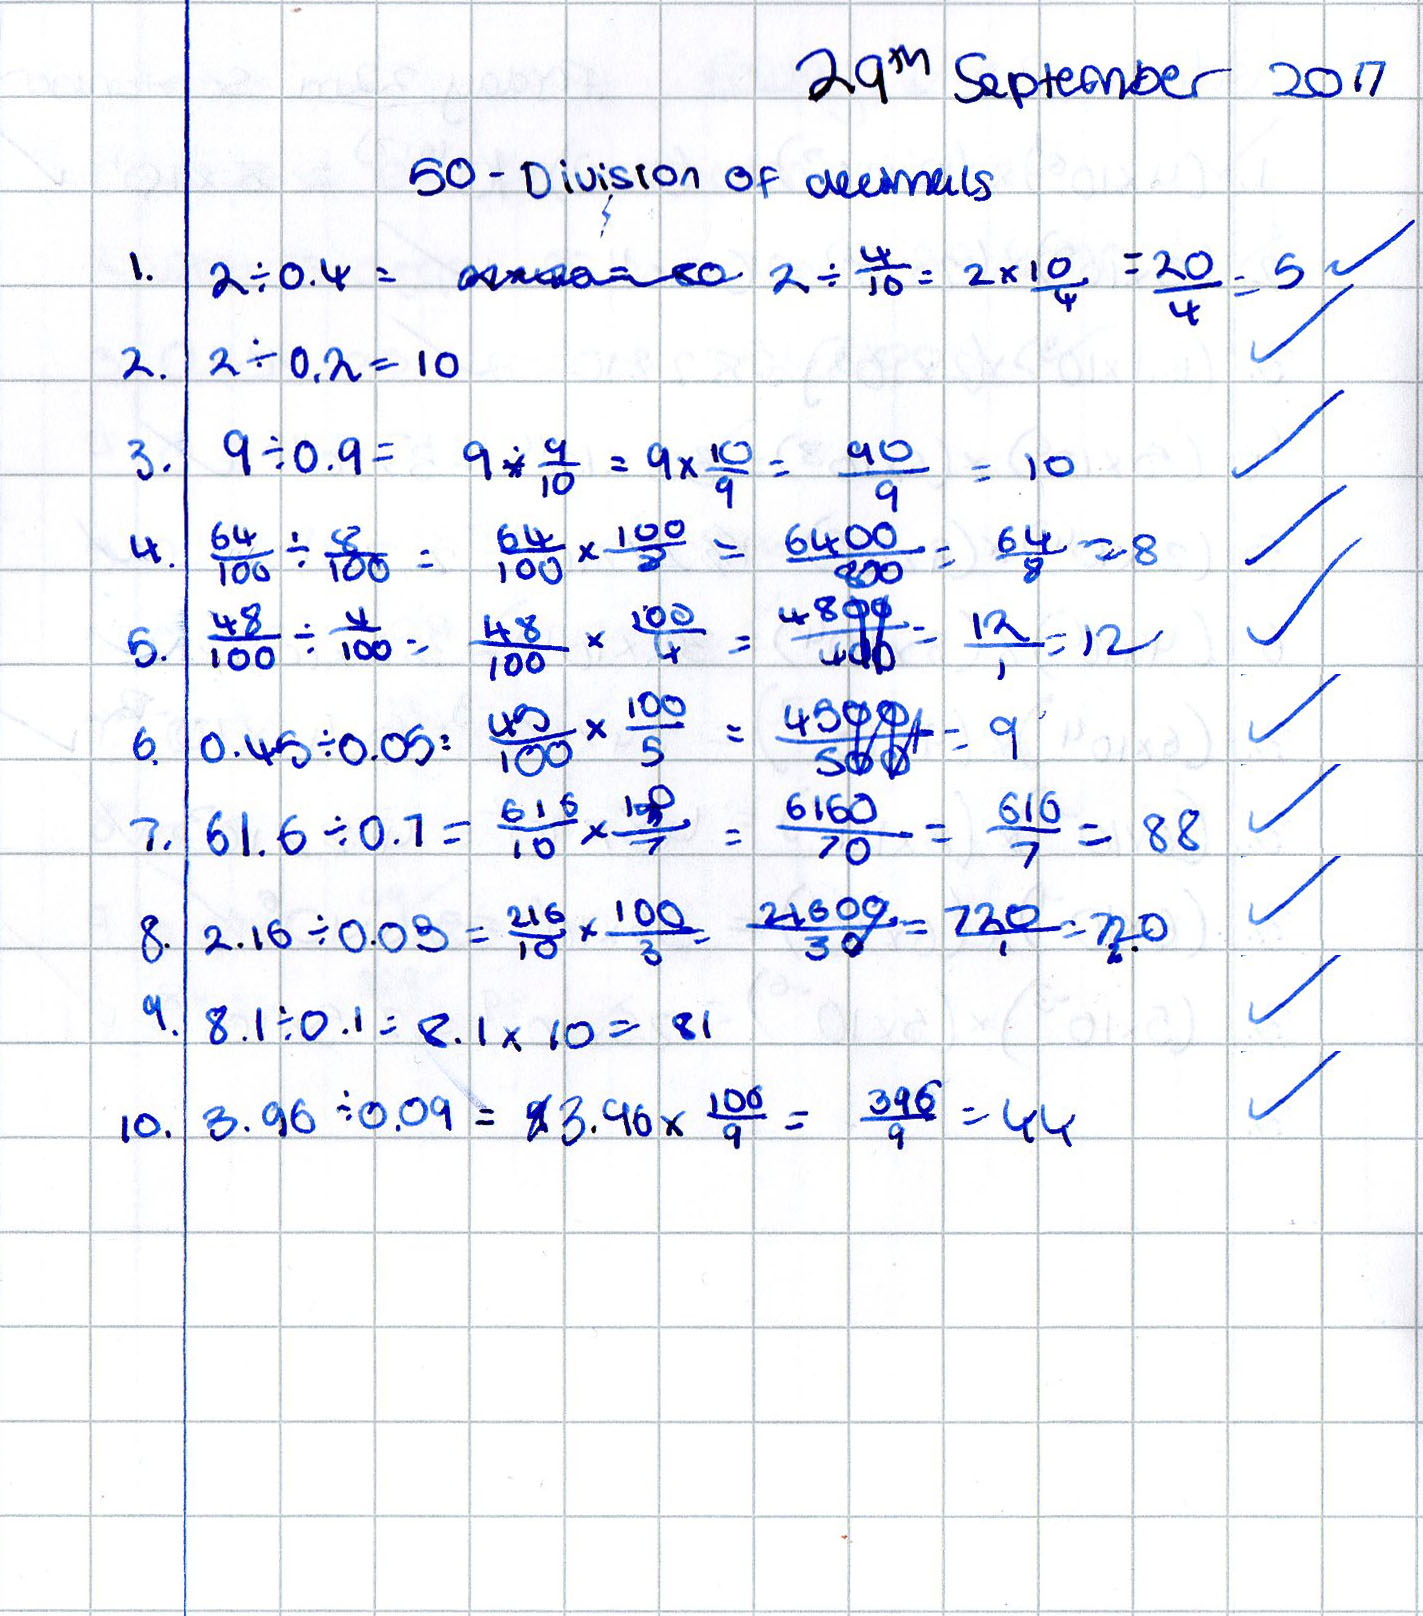 29th September 2017
50 - Division of decimals
1. 2 ÷ 0.4 = 2 ÷ 4/10 = 2 × 10/4 = 20/4 = 5 ✓
2. 2 ÷ 0.2 = 10 ✓
3. 9 ÷ 0.9 = 9 ÷ 9/10 = 9 × 10/9 = 90/9 = 10 ✓
4. 64/100 ÷ 8/100 = 64/100 × 100/8 = 6400/800 = 64/8 = 8 ✓
5. 48/100 ÷ 4/100 = 48/100 × 100/4 = 4800/400 = 12/1 = 12 ✓
6. 0.45 ÷ 0.05 = 45/100 × 100/5 = 4500/500 = 9 ✓
7. 61.6 ÷ 0.7 = 616/10 × 10/7 = 6160/70 = 616/7 = 88 ✓
8. 2.16 ÷ 0.03 = 216/10 × 100/3 = 21600/30 = 720/1 = 72.0 ✓
9. 8.1 ÷ 0.1 = 8.1 × 10 = 81 ✓
10. 3.96 ÷ 0.09 = 3.96 × 100/9 = 396/9 = 44 ✓